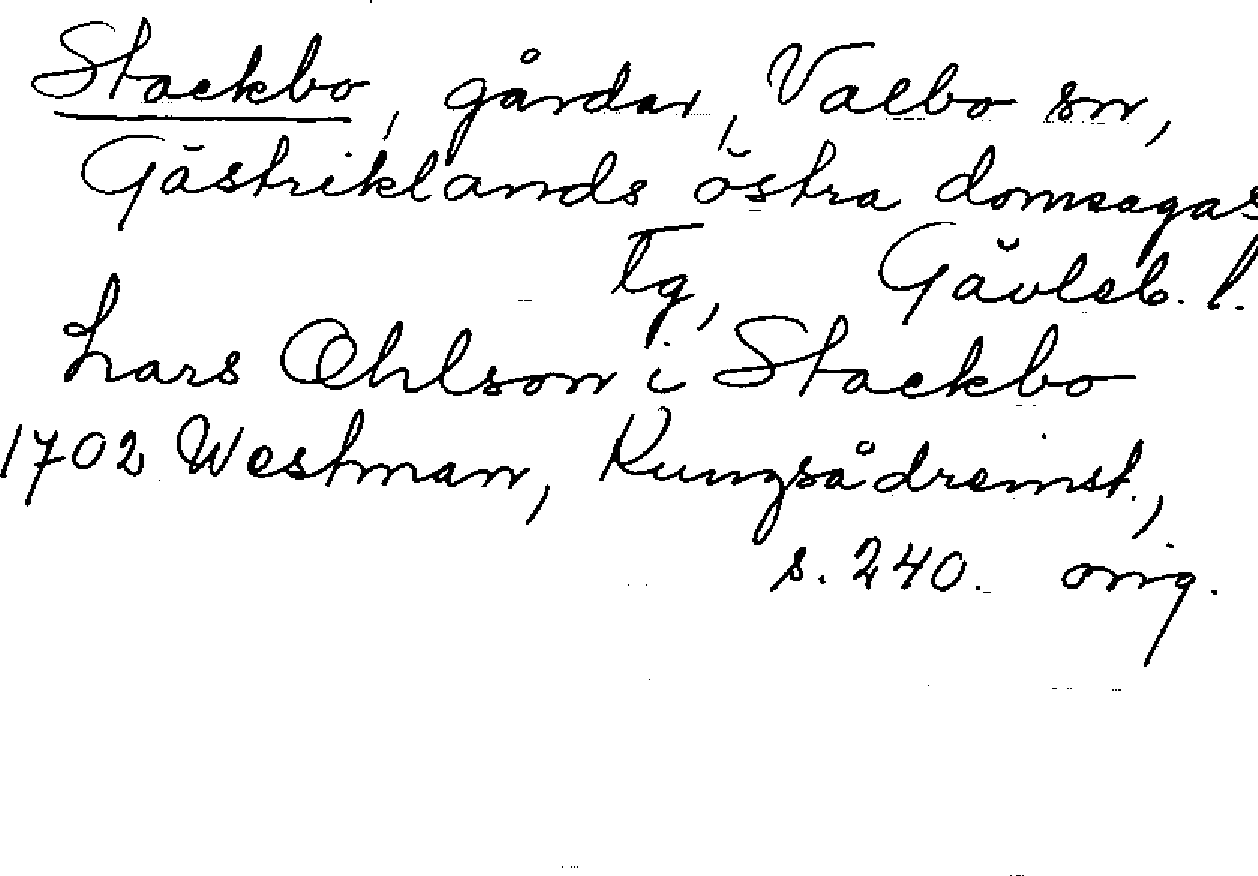 Stackbo, gårdar, Valbo sn,
Gästriklands östra domsagas
Tg, Gävleb. l.
Lars Ohlson i Stackbo
1702 Westman, Kungsådreinst.,
s. 240. orig.